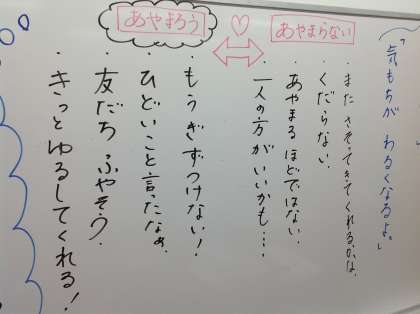 「気もちが わるくなるよ。」
あやまらない
・またさそってきてくれるかな。
・くだらない。
・あやまるほどではない。
・一人の方がいいかも・・・・
あやまろう
・もうきずつけない!
・ひどいこと言ったなぁ。
・友だち ふやそう。
・きっとゆるしてくれる!